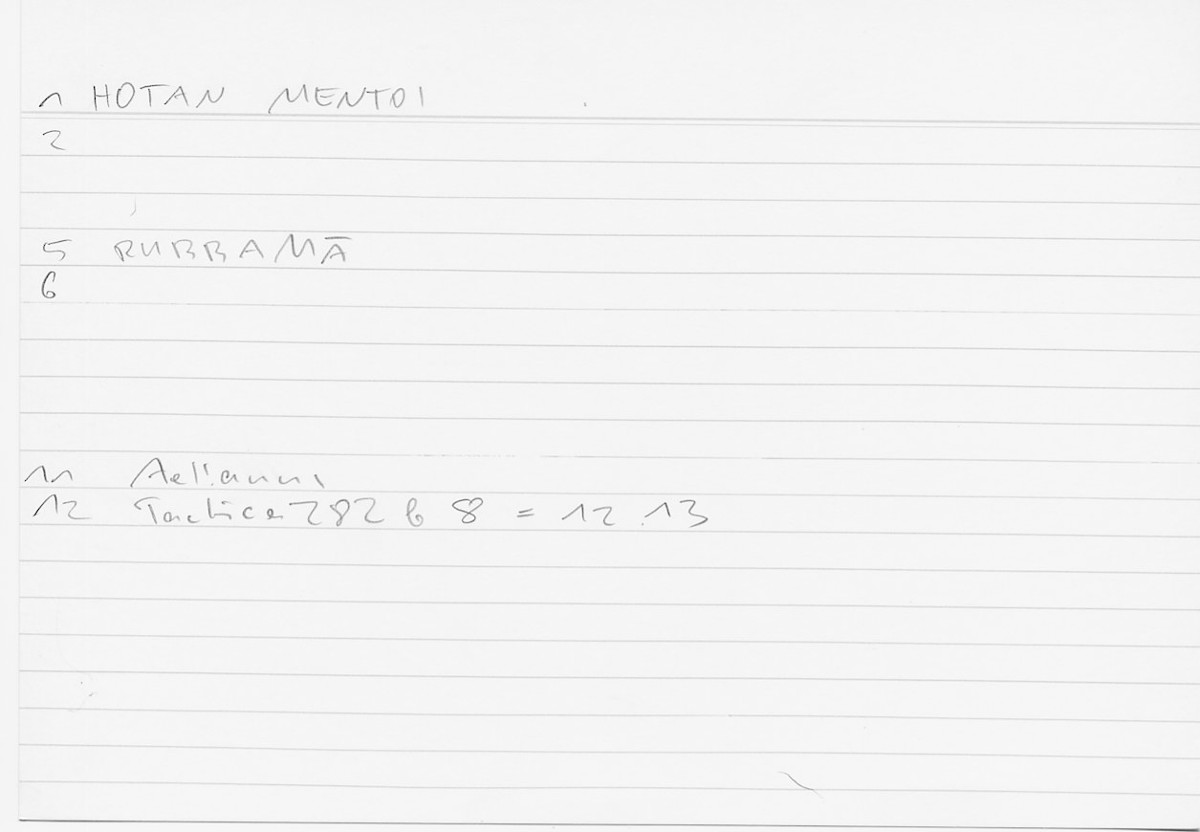 1 HOTAN MENTOI
2
5 RUBRAMĀ
6
11 Aelianus
12 Tactica 282 b 8 = 12.13